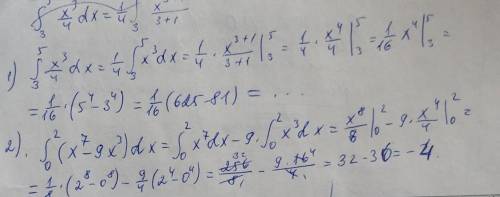 ∫₃ x³/4 dx = 1/4 x³⁺¹/3+1
1) ∫₃⁵ x³/4 dx = 1/4 ∫₃⁵ x³dx = 1/4 · x³⁺¹/3+1 |₃⁵ = 1/4 · x⁴/4 |₃⁵ = 1/16 x⁴ |₃⁵ =
= 1/16 · (5⁴ - 3⁴) = 1/16 (625 - 81) = ...
2). ∫₀² (x⁷ - 9x³)dx = ∫₀² x⁷dx - 9 · ∫₀² x³dx = x⁸/8 |₀² - 9 · x⁴/4 |₀² =
= 1/8 · (2⁸ - 0⁸) - 9/4 (2⁴ - 0⁴) = 256/8 - 9·16/4 = 32 - 36 = -4.